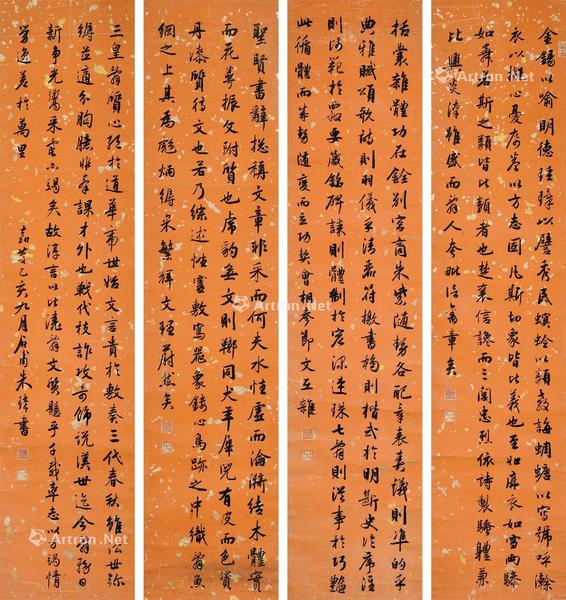 金錫以喻明德珪璋以譬秀民螟蛉以類教誨蜩螗以寫號呼澣
衣以擬心憂席卷以方志固凡斯切象皆比義也至如麻衣如雪兩驂
如舞若斯之類皆比類者也楚襄信讒而三閭忠烈依詩製騷兼
比興炎漢雖盛而辭人夸毗舊章矣
括囊雜體功在銓別宮商朱紫隨勢各配章表奏議則準的乎
典雅賦頌歌詩則羽儀乎清麗符檄書移則楷式於明斷史論序注
則師範於覈要箴銘碑誄則體制於宏深連珠七辭則從事於巧豔
此循體而成勢隨變而立功契會相參節文互雜
聖賢書辭總稱文章非采而何夫水性虛而淪漪結木體實
而花萼振文附質也虎豹無文則鞹同犬羊犀兕有皮而色資
丹漆質待文也若乃綜述性靈敷寫器象鏤心鳥跡之中織辭魚
網之上其為彪炳縟采繁文理蔚然矣
三皇辭質心絕於道華帝世始文言貴於敷奏三代春秋雖沿世彌
縟並適分胸臆非牽課才外也戰代枝詐攻奇飾說漢世迄今辭務日
新爭光鬻采慮亦竭矣故淳言以比澆辭文質懸乎千載率志以方竭情
勞逸差於萬里
嘉慶乙亥九月石甫朱書